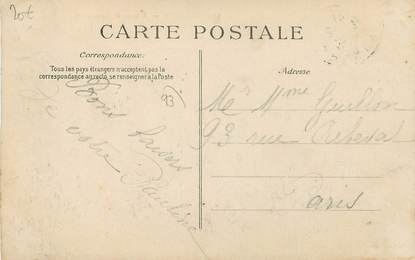 20t
CARTE POSTALE
Correspondance:
Tous les pays étrangers n'acceptent pas la
correspondance au recto, se renseigner à la Poste
Adresse
93
Bons baisers
de votre Pauline
Mr Mme Guillon
93 rue
Paris